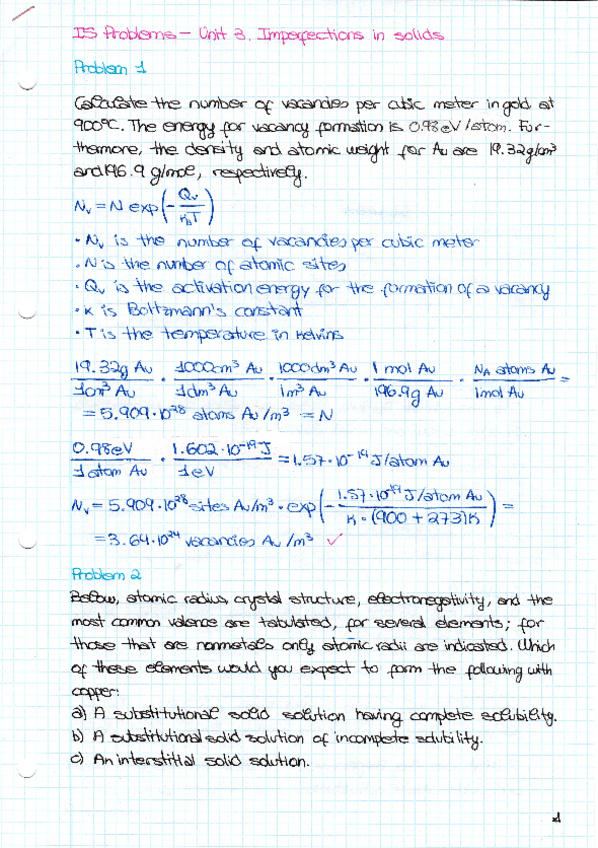 IS Problems - Unit 3. Imperfections in solids
Problem 1
Calculate the number of vacancies per cubic meter in gold at
900ºC. The energy for vacancy formation is 0.98 eV/atom. Fur-
thermore, the density and atomic weight for Au are 19.32g/cm³
and 196.9 g/mol, respectively.
Nv = N exp(- Qv / kBT)
· Nv is the number of vacancies per cubic meter
· N is the number of atomic sites
· Qv is the activation energy for the formation of a vacancy
· K is Boltzmann's constant
· T is the temperature in Kelvins
19.32g Au / 1cm³ Au · 1000cm³ Au / 1dm³ Au · 1000dm³ Au / 1m³ Au · 1 mol Au / 196.9g Au · NA atoms Au / 1mol Au =
= 5.909·10²⁸ atoms Au/m³ = N
0.98eV / 1 atom Au · 1.602·10⁻¹⁹J / 1eV = 1.57·10⁻¹⁹J/atom Au
Nv = 5.909·10²⁸ sites Au/m³ · exp(- 1.57·10⁻¹⁹J/atom Au / K·(900+273)K) =
= 3.64·10²⁴ vacancies Au/m³ ✓
Problem 2
Below, atomic radius, crystal structure, electronegativity, and the
most common valence are tabulated, for several elements; for
those that are nonmetals only atomic radii are indicated. Which
of these elements would you expect to form the following with
copper:
a) A substitutional solid solution having complete solubility.
b) A substitutional solid solution of incomplete solubility.
c) An interstitial solid solution.
1